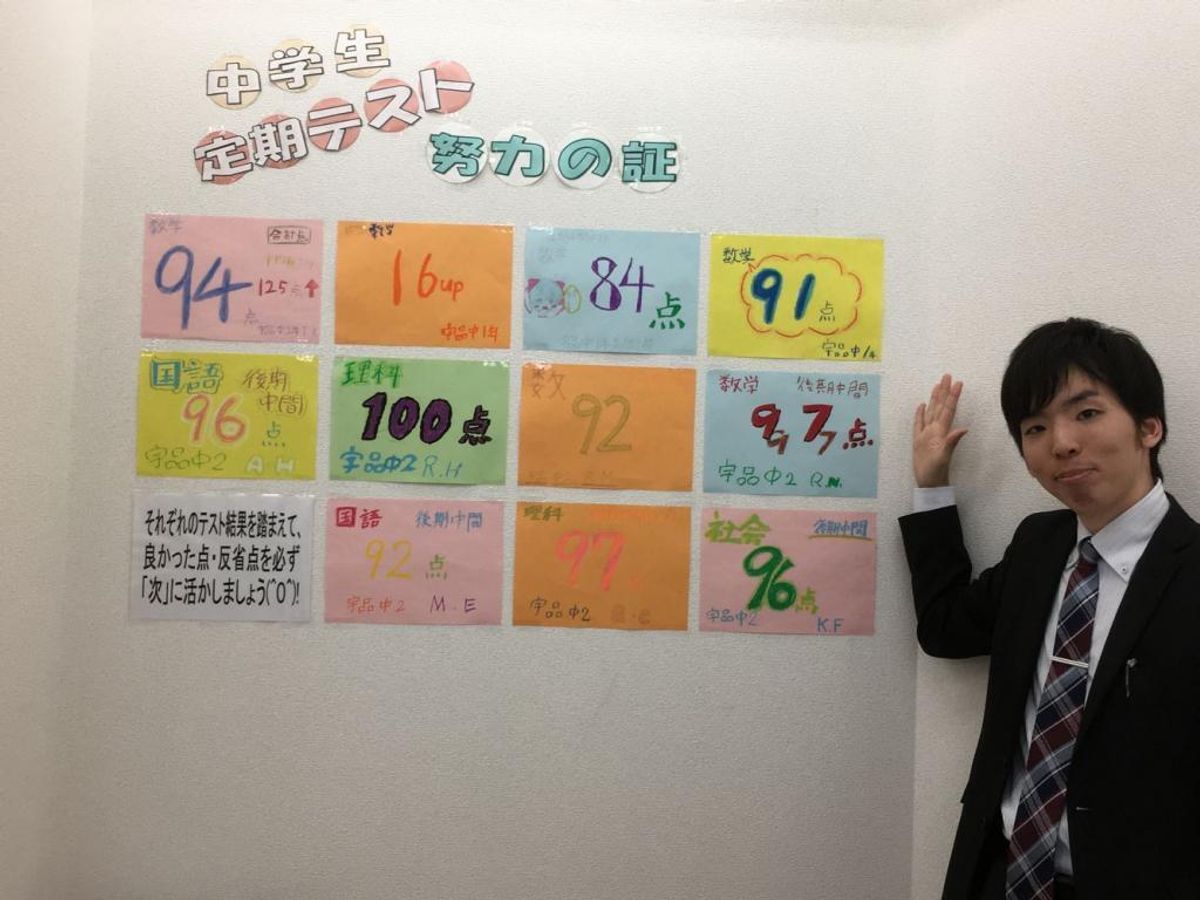 中学生
定期テスト
努力の証
数学
合計点
94
125点↑
点
数学
16up
宇品中1年
数学
84点
数学
91点
宇品中1年
国語 後期中間
96点
宇品中2 A.H
理科
100点
宇品中2 R.H
数
92
数学 後期中間
97点
宇品中2 R.N.
それぞれのテスト結果を踏まえて、
良かった点・反省点を必ず
「次」に活かしましょう(^O^)!
国語 後期中間
92点
宇品中2 M.E
理科
97
宇品中2
社会 後期中間
96点
宇品中2 K.F